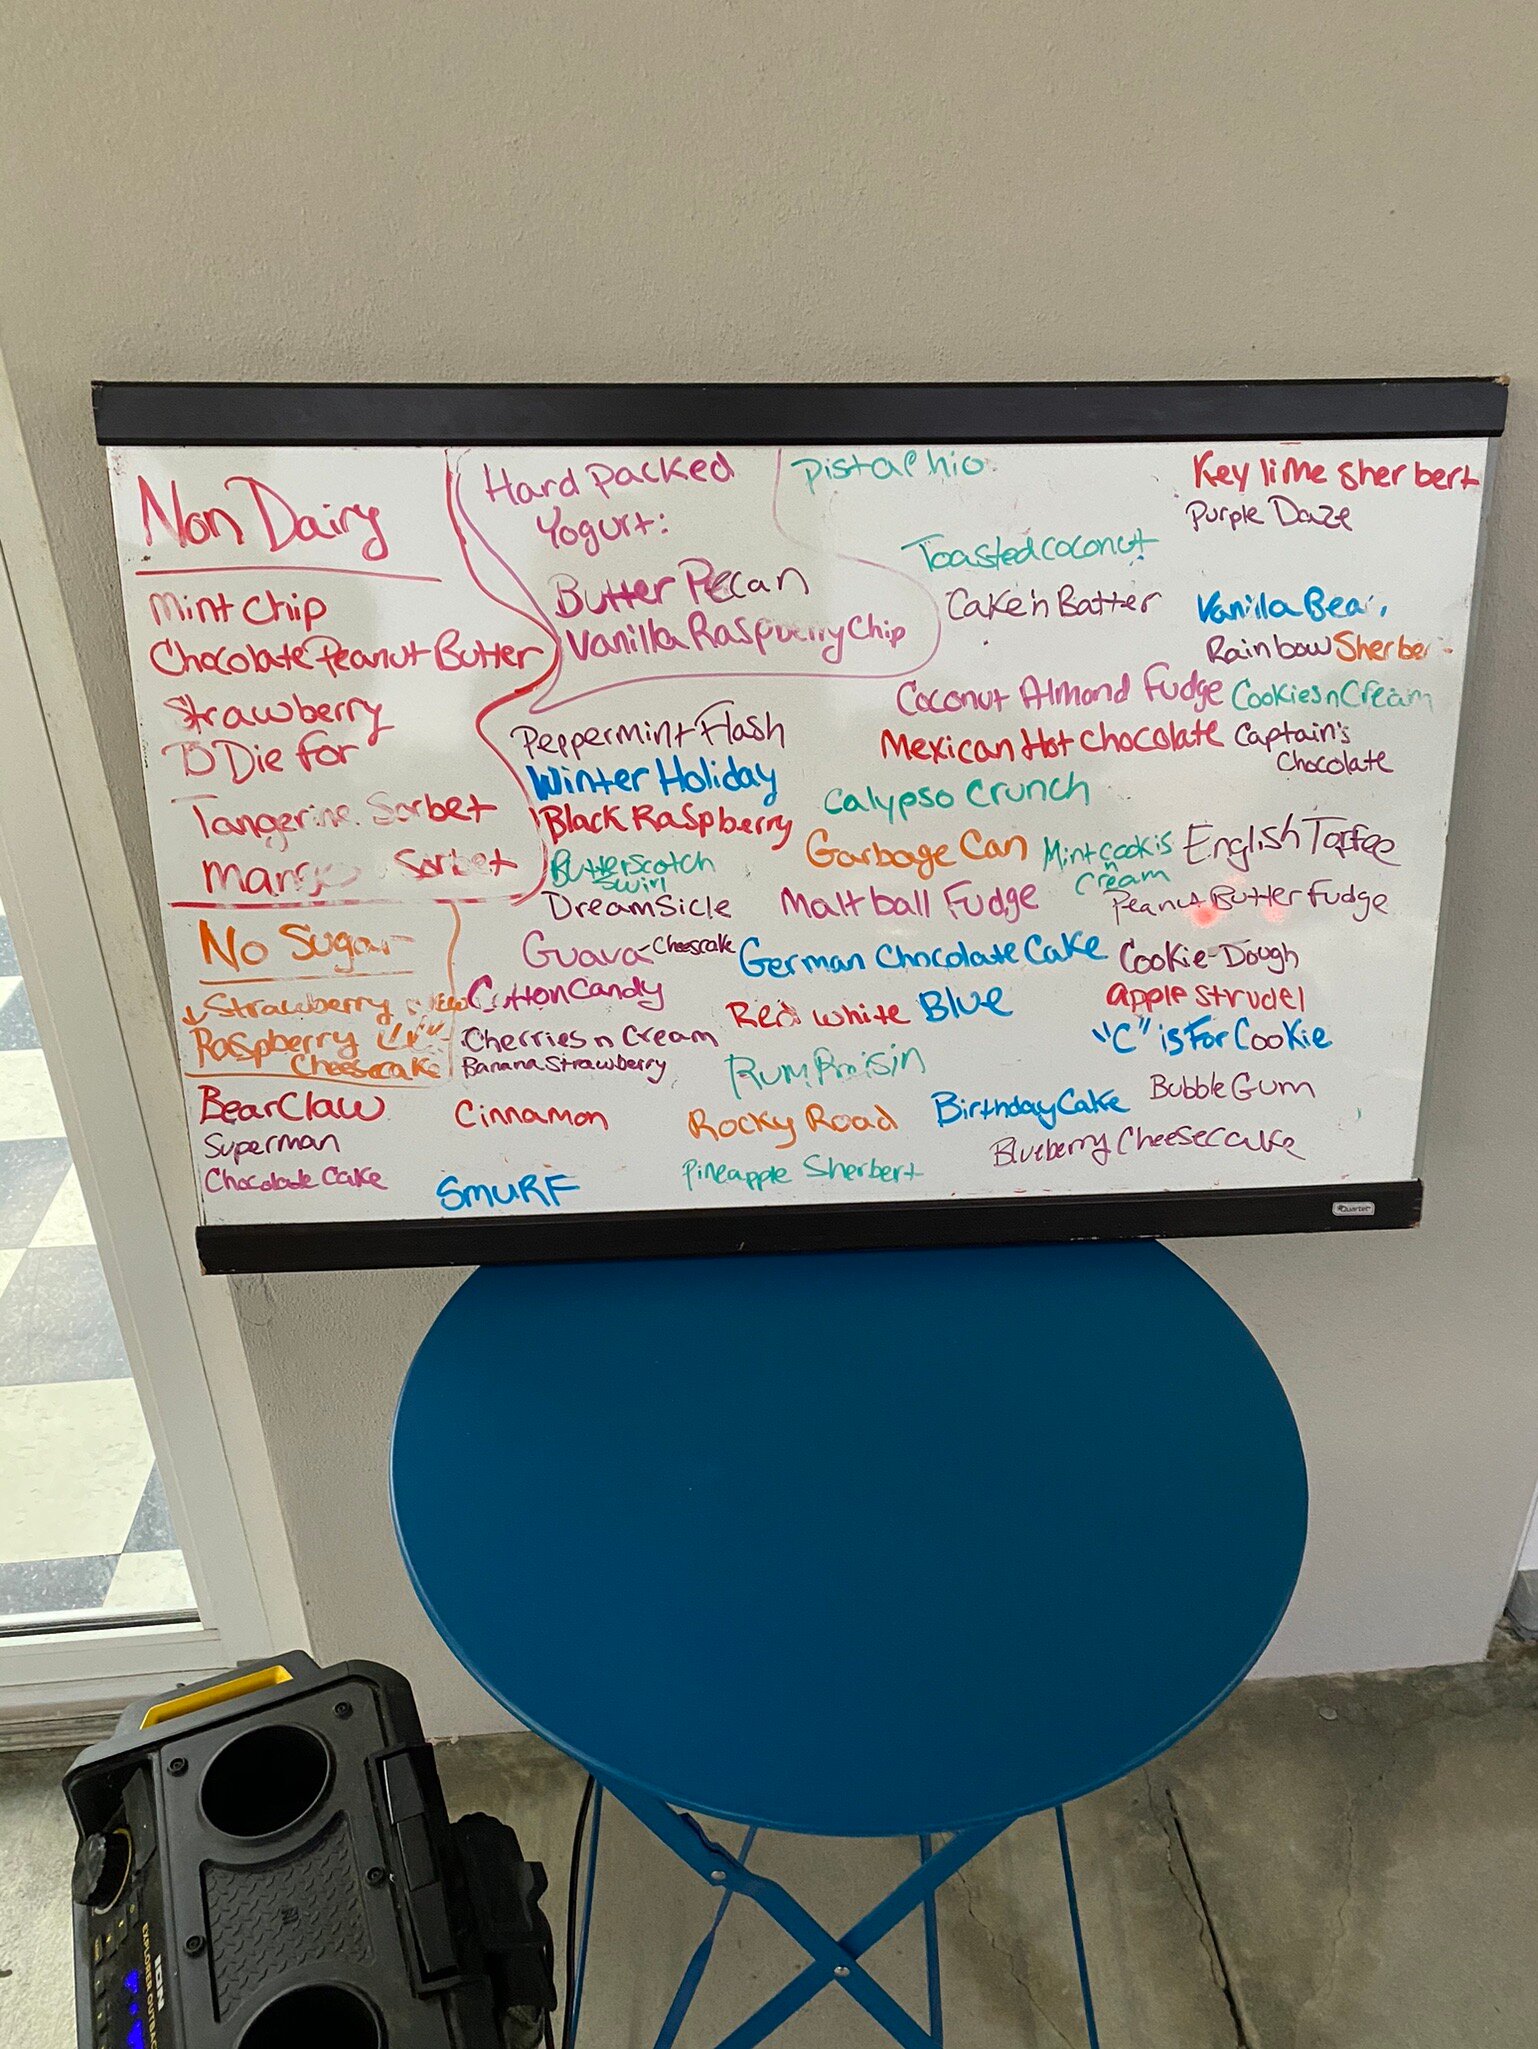 Non Dairy
Mint Chip
Chocolate Peanut Butter
Strawberry
Die For
Tangerine Sorbet
Mango Sorbet
No Sugar
Strawberry
Raspberry
Cheesecake
Bear Claw
Superman
Chocolate Cake
Hard Packed
Yogurt:
Butter Pecan
Vanilla Raspberry Chip
Peppermint Flash
Winter Holiday
Black Raspberry
Butterscotch
Swirl
DreamSicle
Guava-Cheescake
Cotton Candy
Cherries n Cream
Banana Strawberry
Cinnamon
SMURF
Pistachio
Toasted coconut
Cake'n Batter
Coconut Almond Fudge
Mexican Hot Chocolate
Calypso Crunch
Garbage Can
Mint Cookis
n
Cream
Malt ball Fudge
German Chocolate Cake
Red white Blue
Rum Raisin
Rocky Road
Birthday Cake
Pineapple Sherbert
Blueberry Cheesecake
Key lime Sherbert
Purple Daze
Vanilla Bean
Rainbow Sherbert
Cookies n Cream
Captain's
Chocolate
English Toffee
Peanut Butter Fudge
Cookie-Dough
apple strudel
"C" is For Cookie
Bubble Gum
Quartet
ION
EXPLORER OUTBACK